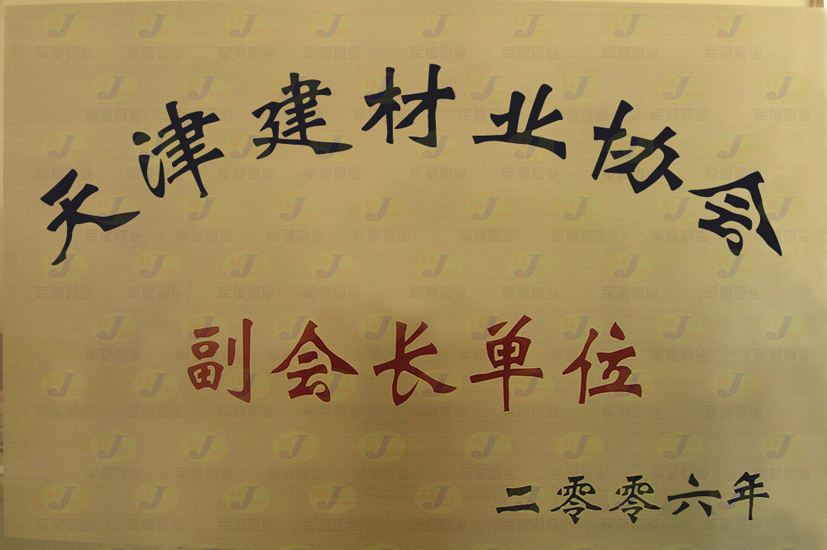 天津建材业协会
副会长单位
二零零六年